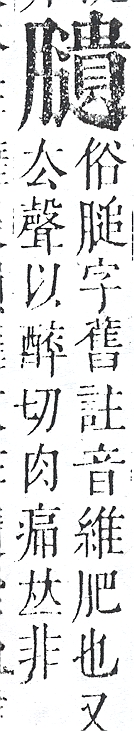 膭
俗膇字舊註音維肥也又
厺聲以醉切肉痛𠀤非